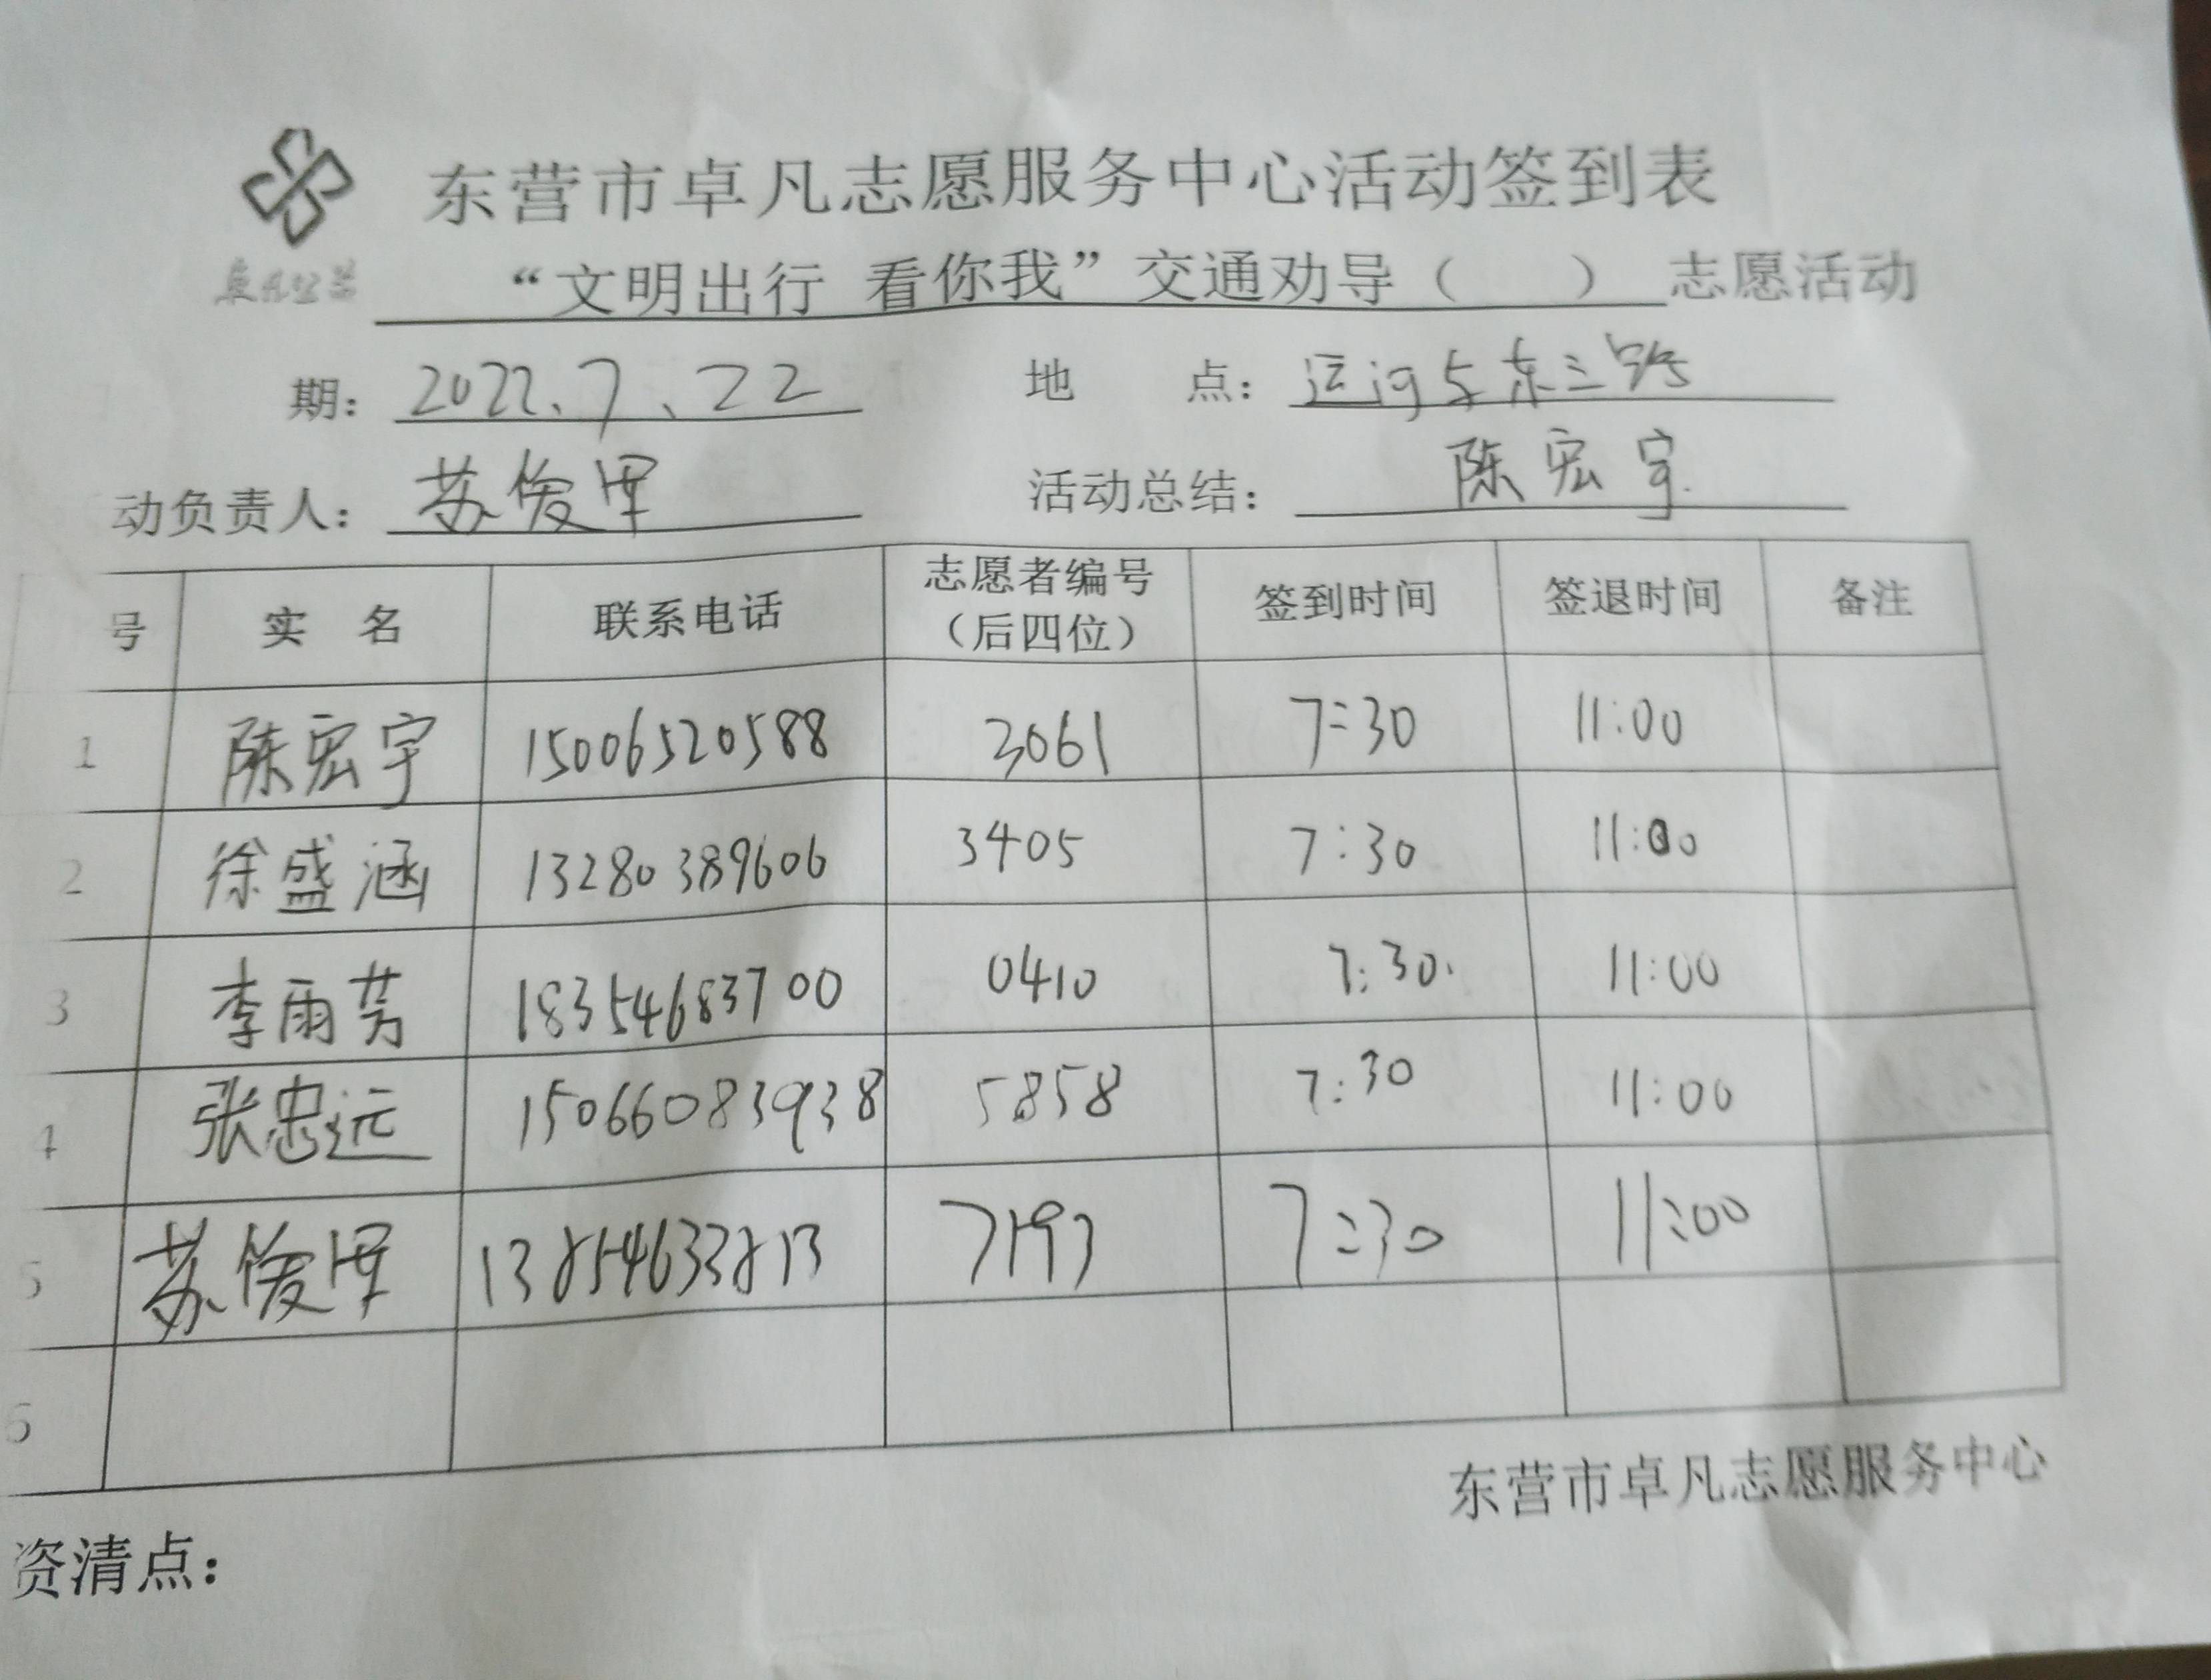 东营市卓凡志愿服务中心活动签到表
卓凡公益
“文明出行 看你我”交通劝导（ ）志愿活动
期： 2022.7.22 地 点： 运河与东三路
动负责人： 苏俊 活动总结： 陈宏宇
号 实 名 联系电话 志愿者编号（后四位） 签到时间 签退时间 备注
1 陈宏宇 15006520588 3061 7:30 11:00
2 徐盛涵 13280389606 3405 7:30 11:00
3 李雨芳 18354683700 0410 7:30. 11:00
4 张忠远 15066083938 5858 7:30 11:00
5 苏俊 13854633813 7193 7:30 11:00
6
东营市卓凡志愿服务中心
资清点：